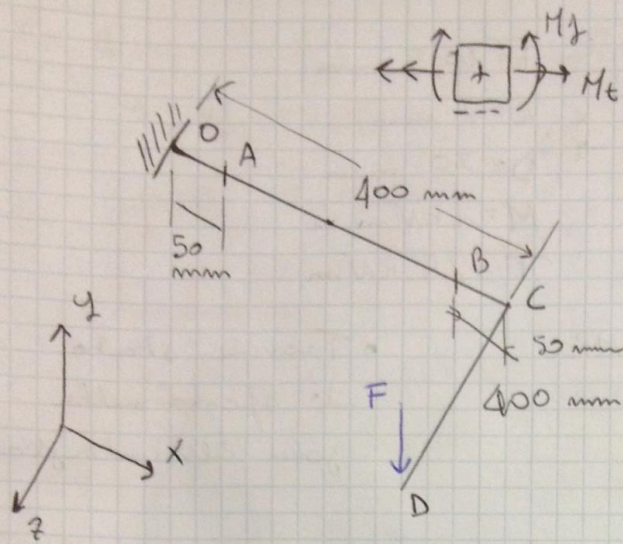 Mf
+
Mt
O
A
400 mm
50
mm
B
C
50 mm
400 mm
F
D
y
x
z